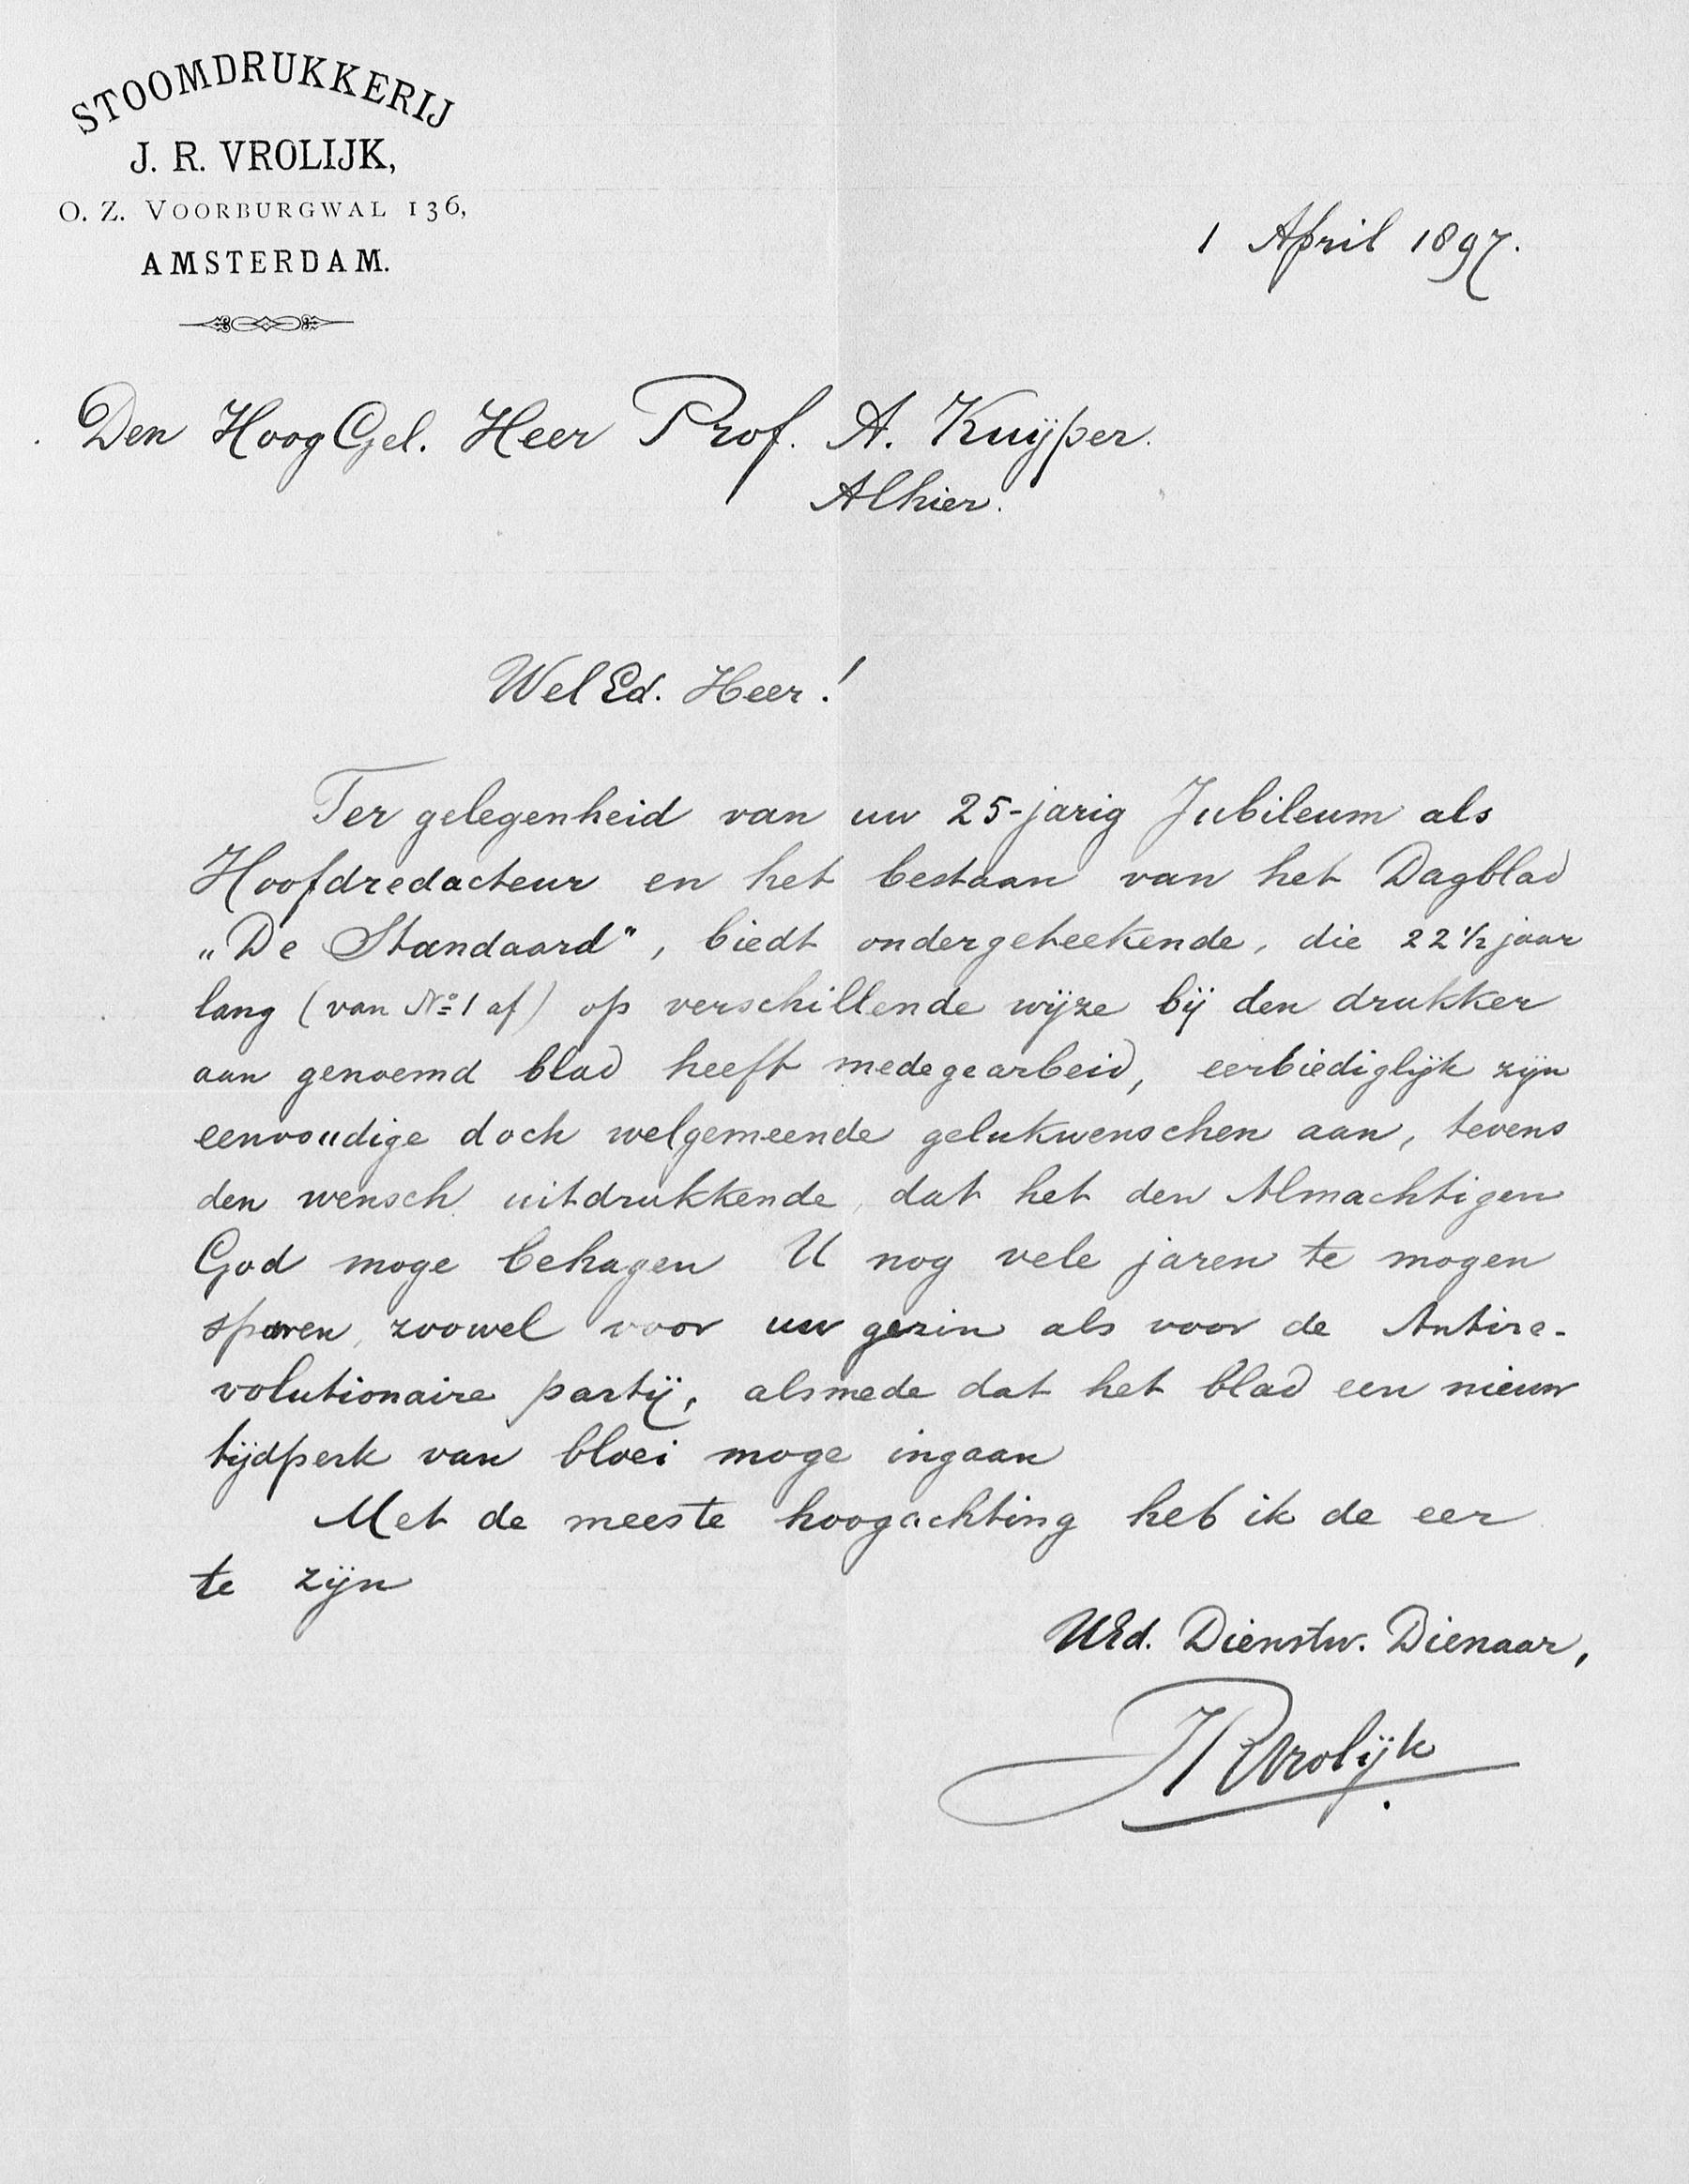 STOOMDRUKKERIJ
J. R. VROLIJK,
O. Z. VOORBURGWAL 136,
AMSTERDAM.
1 April 1897.
Den HoogGel. Heer Prof. A. Kuijper.
Alhier.
Wel Ed. Heer!
Ter gelegenheid van uw 25-jarig Jubileum als
Hoofdredacteur en het bestaan van het Dagblad
„De Standaard", biedt ondergeteekende, die 22 1/2 jaar
lang (van No 1 af) op verschillende wijze bij den drukker
aan genoemd blad heeft medegearbeid, eerbiediglijk zijn
eenvoudige doch welgemeende gelukwenschen aan, tevens
den wensch uitdrukkende, dat het den Almachtigen
God moge behagen U nog vele jaren te mogen
sparen, zoowel voor uw gezin als voor de Antire-
volutionaire partij, alsmede dat het blad een nieuw
tijdperk van bloei moge ingaan
Met de meeste hoogachting heb ik de eer
te zijn
UEd. Dienstw. Dienaar,
JRVrolijk